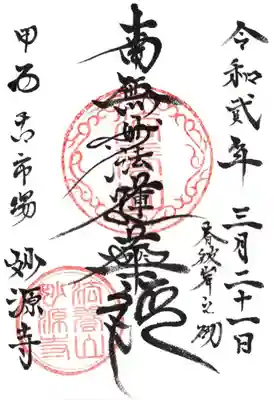 令和貳年 三月二十一日
春彼岸之砌
南無妙法蓮華経
甲西 古市場 妙源寺
妙源寺